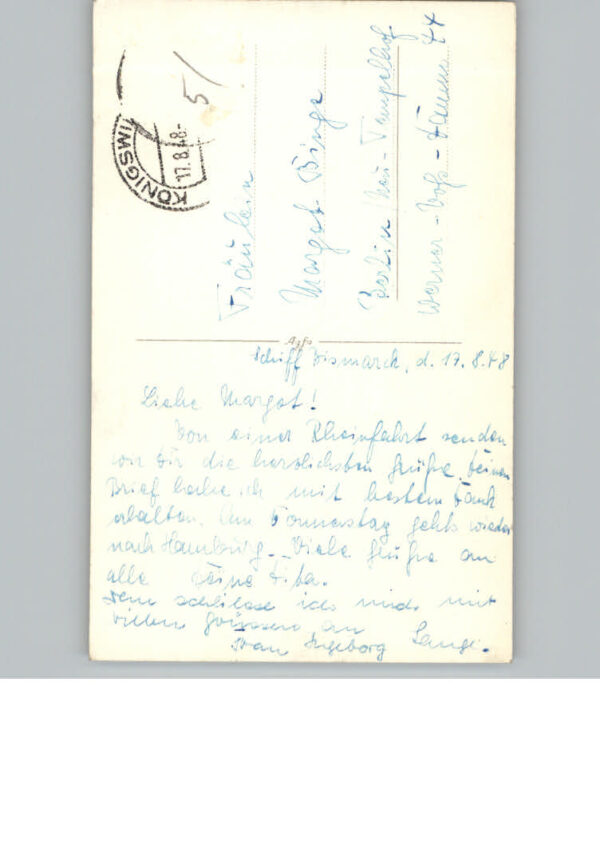 KÖNIGSWI
17.8.48-
5/
Fräulein
Margot Binge
Berlin Neu-Tempelhof
Werner-Voß-Damm 44
Agfa
Schiff Bismarck, d. 17.8.48
Liebe Margot!
Von einer Rheinfahrt senden
wir Dir die herzlichsten Grüße. Deinen
Brief habe ich mit bestem Dank
erhalten. Am Donnerstag gehts wieder
nach Hamburg. Viele Grüße an
alle Deine
Dem schliesse ich mich mit
vielen Grüssen an
Frau Ingeborg Lange.